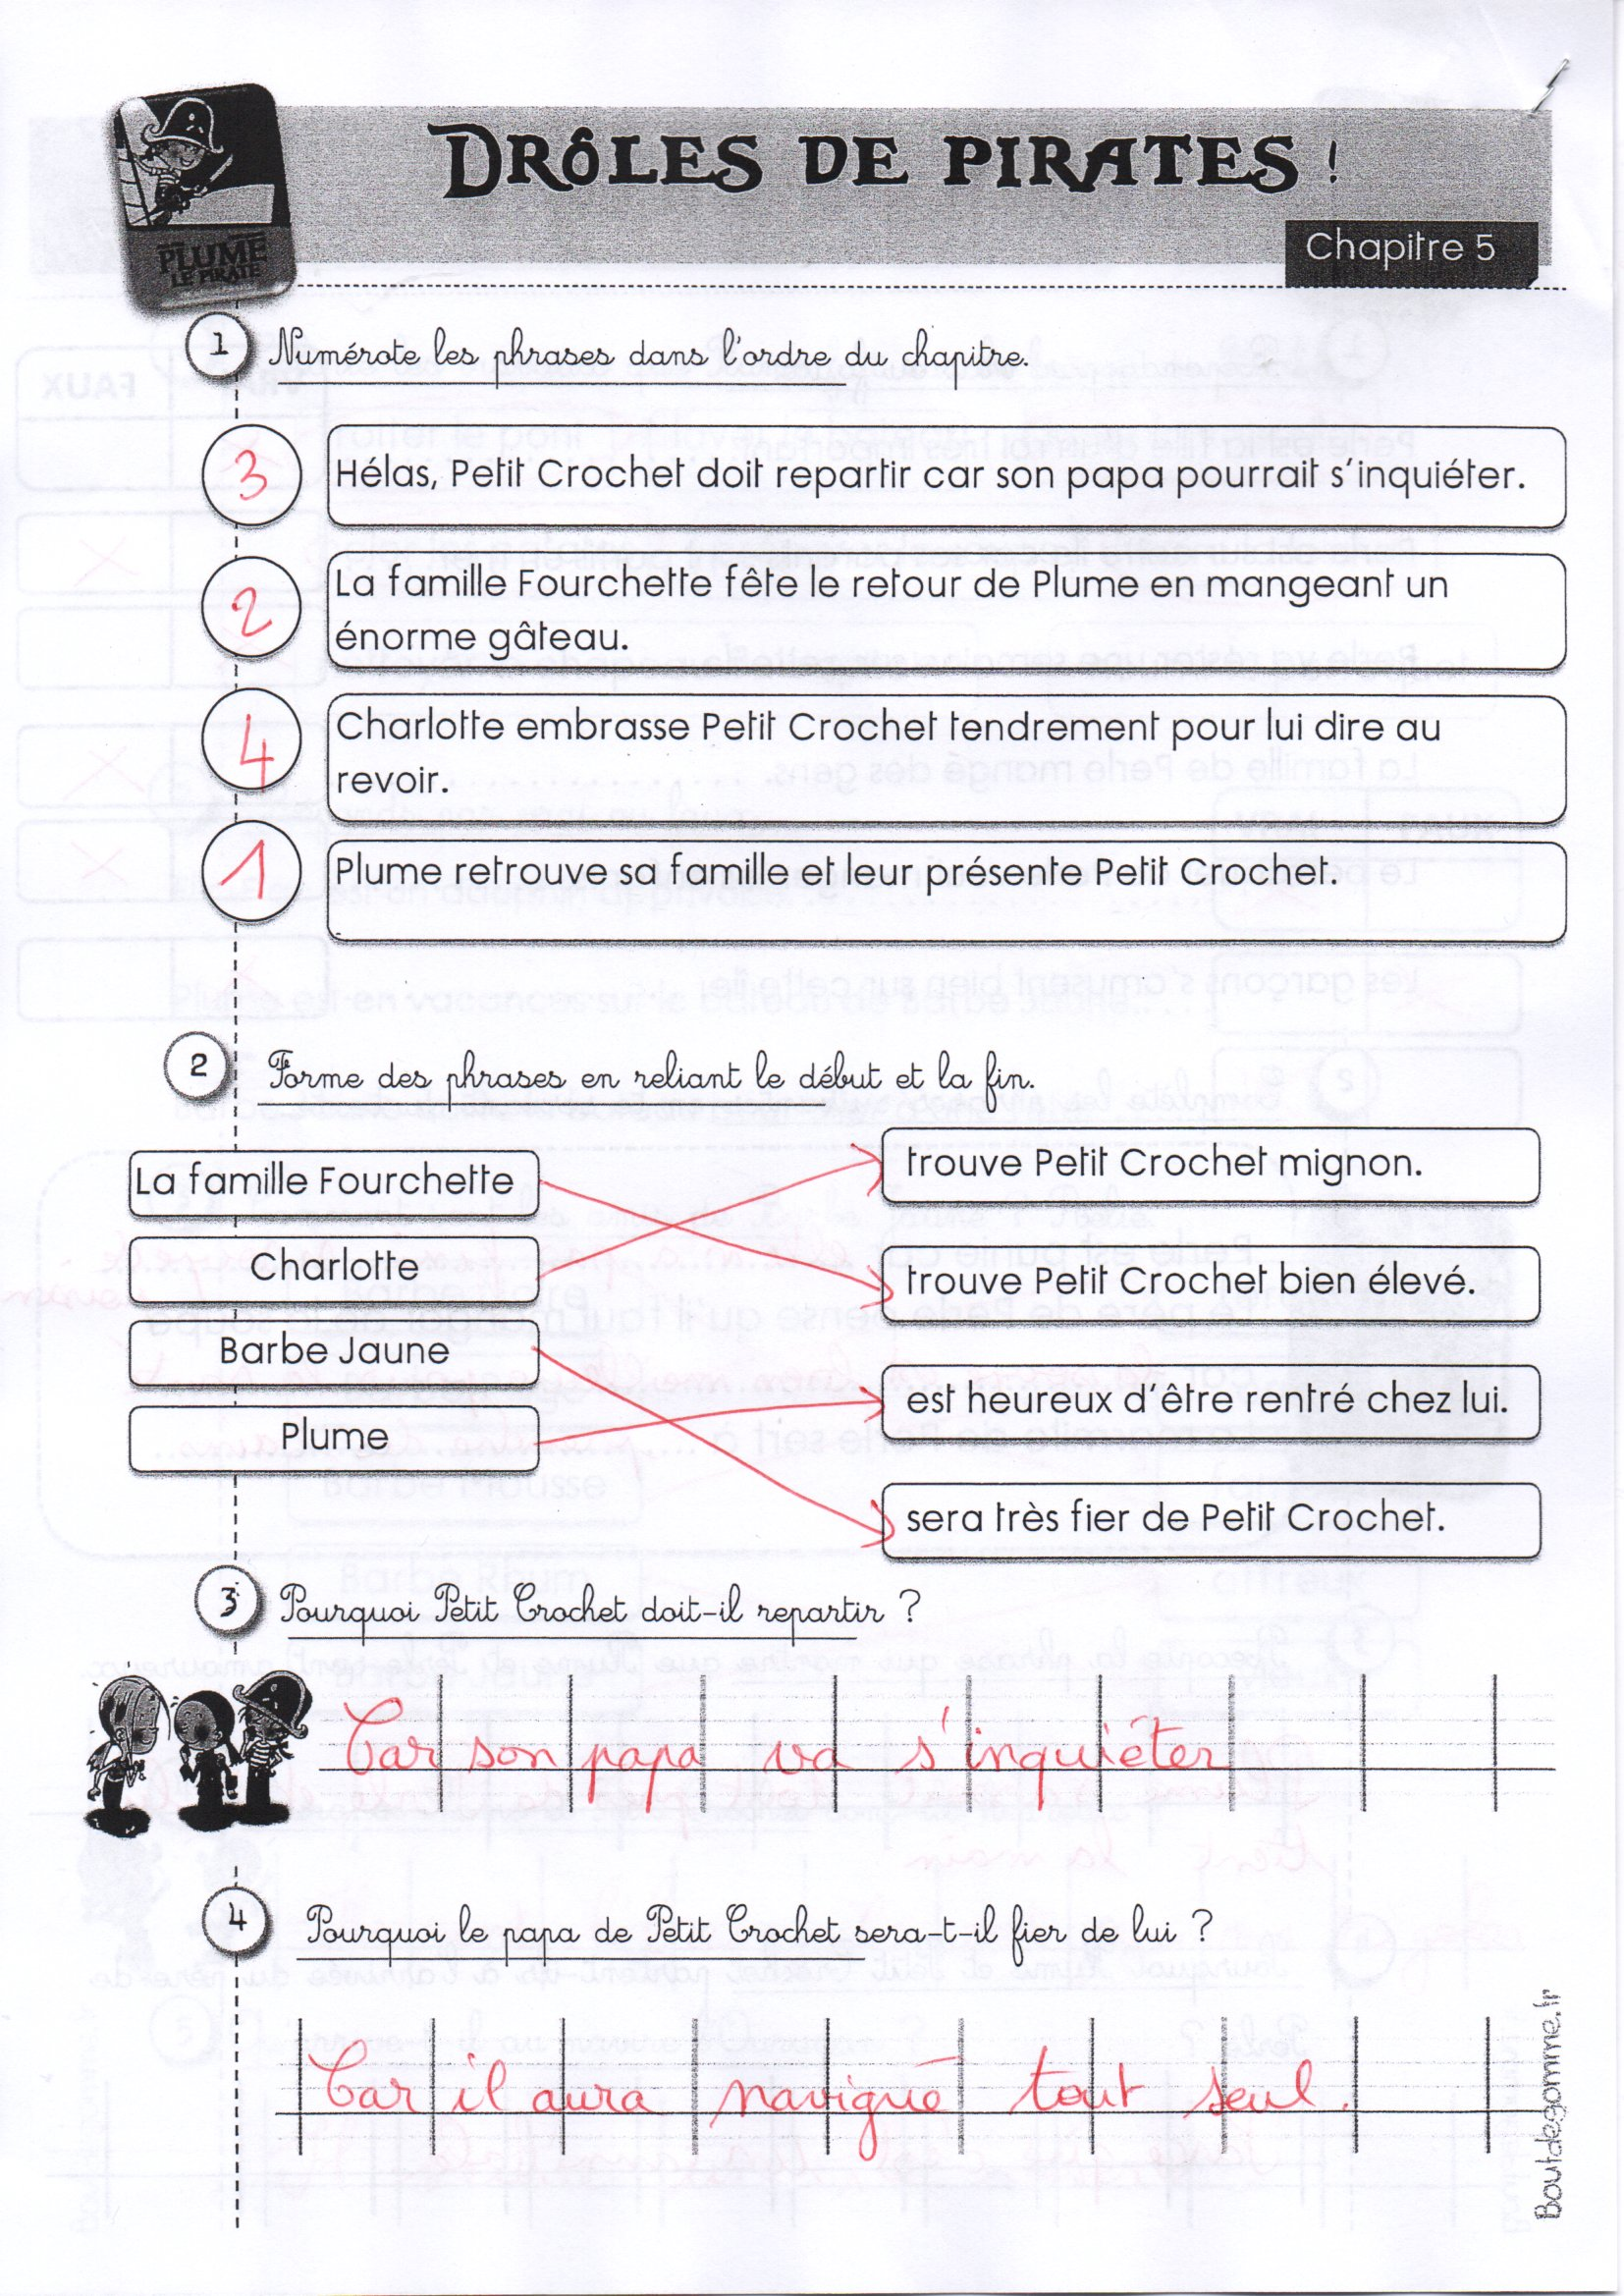 DRÔLES DE PIRATES !
PLUME
LE PIRATE
Chapitre 5
1 Numérote les phrases dans l'ordre du chapitre.
3 Hélas, Petit Crochet doit repartir car son papa pourrait s'inquiéter.
2 La famille Fourchette fête le retour de Plume en mangeant un
énorme gâteau.
4 Charlotte embrasse Petit Crochet tendrement pour lui dire au
revoir.
1 Plume retrouve sa famille et leur présente Petit Crochet.
2 Forme des phrases en reliant le début et la fin.
La famille Fourchette
Charlotte
Barbe Jaune
Plume
trouve Petit Crochet mignon.
trouve Petit Crochet bien élevé.
est heureux d'être rentré chez lui.
sera très fier de Petit Crochet.
3 Pourquoi Petit Crochet doit-il repartir ?
Car son papa va s'inquiéter
4 Pourquoi le papa de Petit Crochet sera-t-il fier de lui ?
Car il aura navigué tout seul.
Boutdegomme.fr